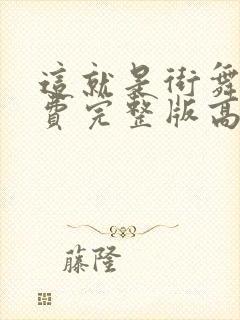 這就是街舞
費完整版高
藤隆